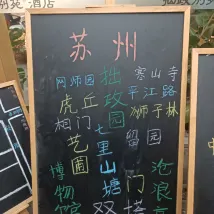 酒店
苏州
网师园 拙政园 寒山寺
虎丘 平江路
相门 狮子林
艺圃 七里山塘 留园
博物馆 门 沧浪亭
双塔